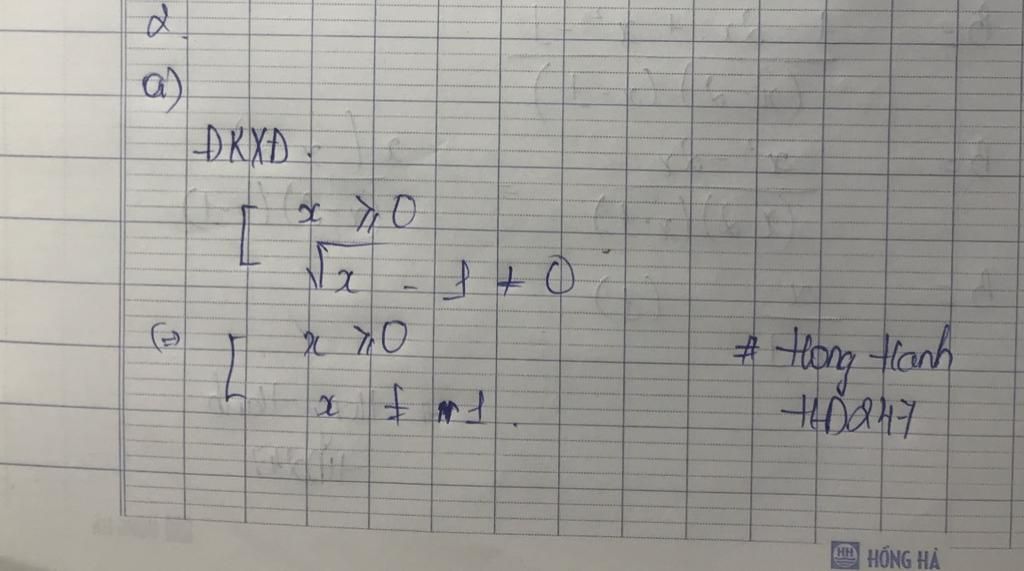 2.
a)
ĐKXĐ.
[ x ⩾ 0
√x - 1 ≠ 0
(=) [ x ⩾ 0
x ≠ 1.
# Hong Hanh
HD247
HH HỒNG HÀ